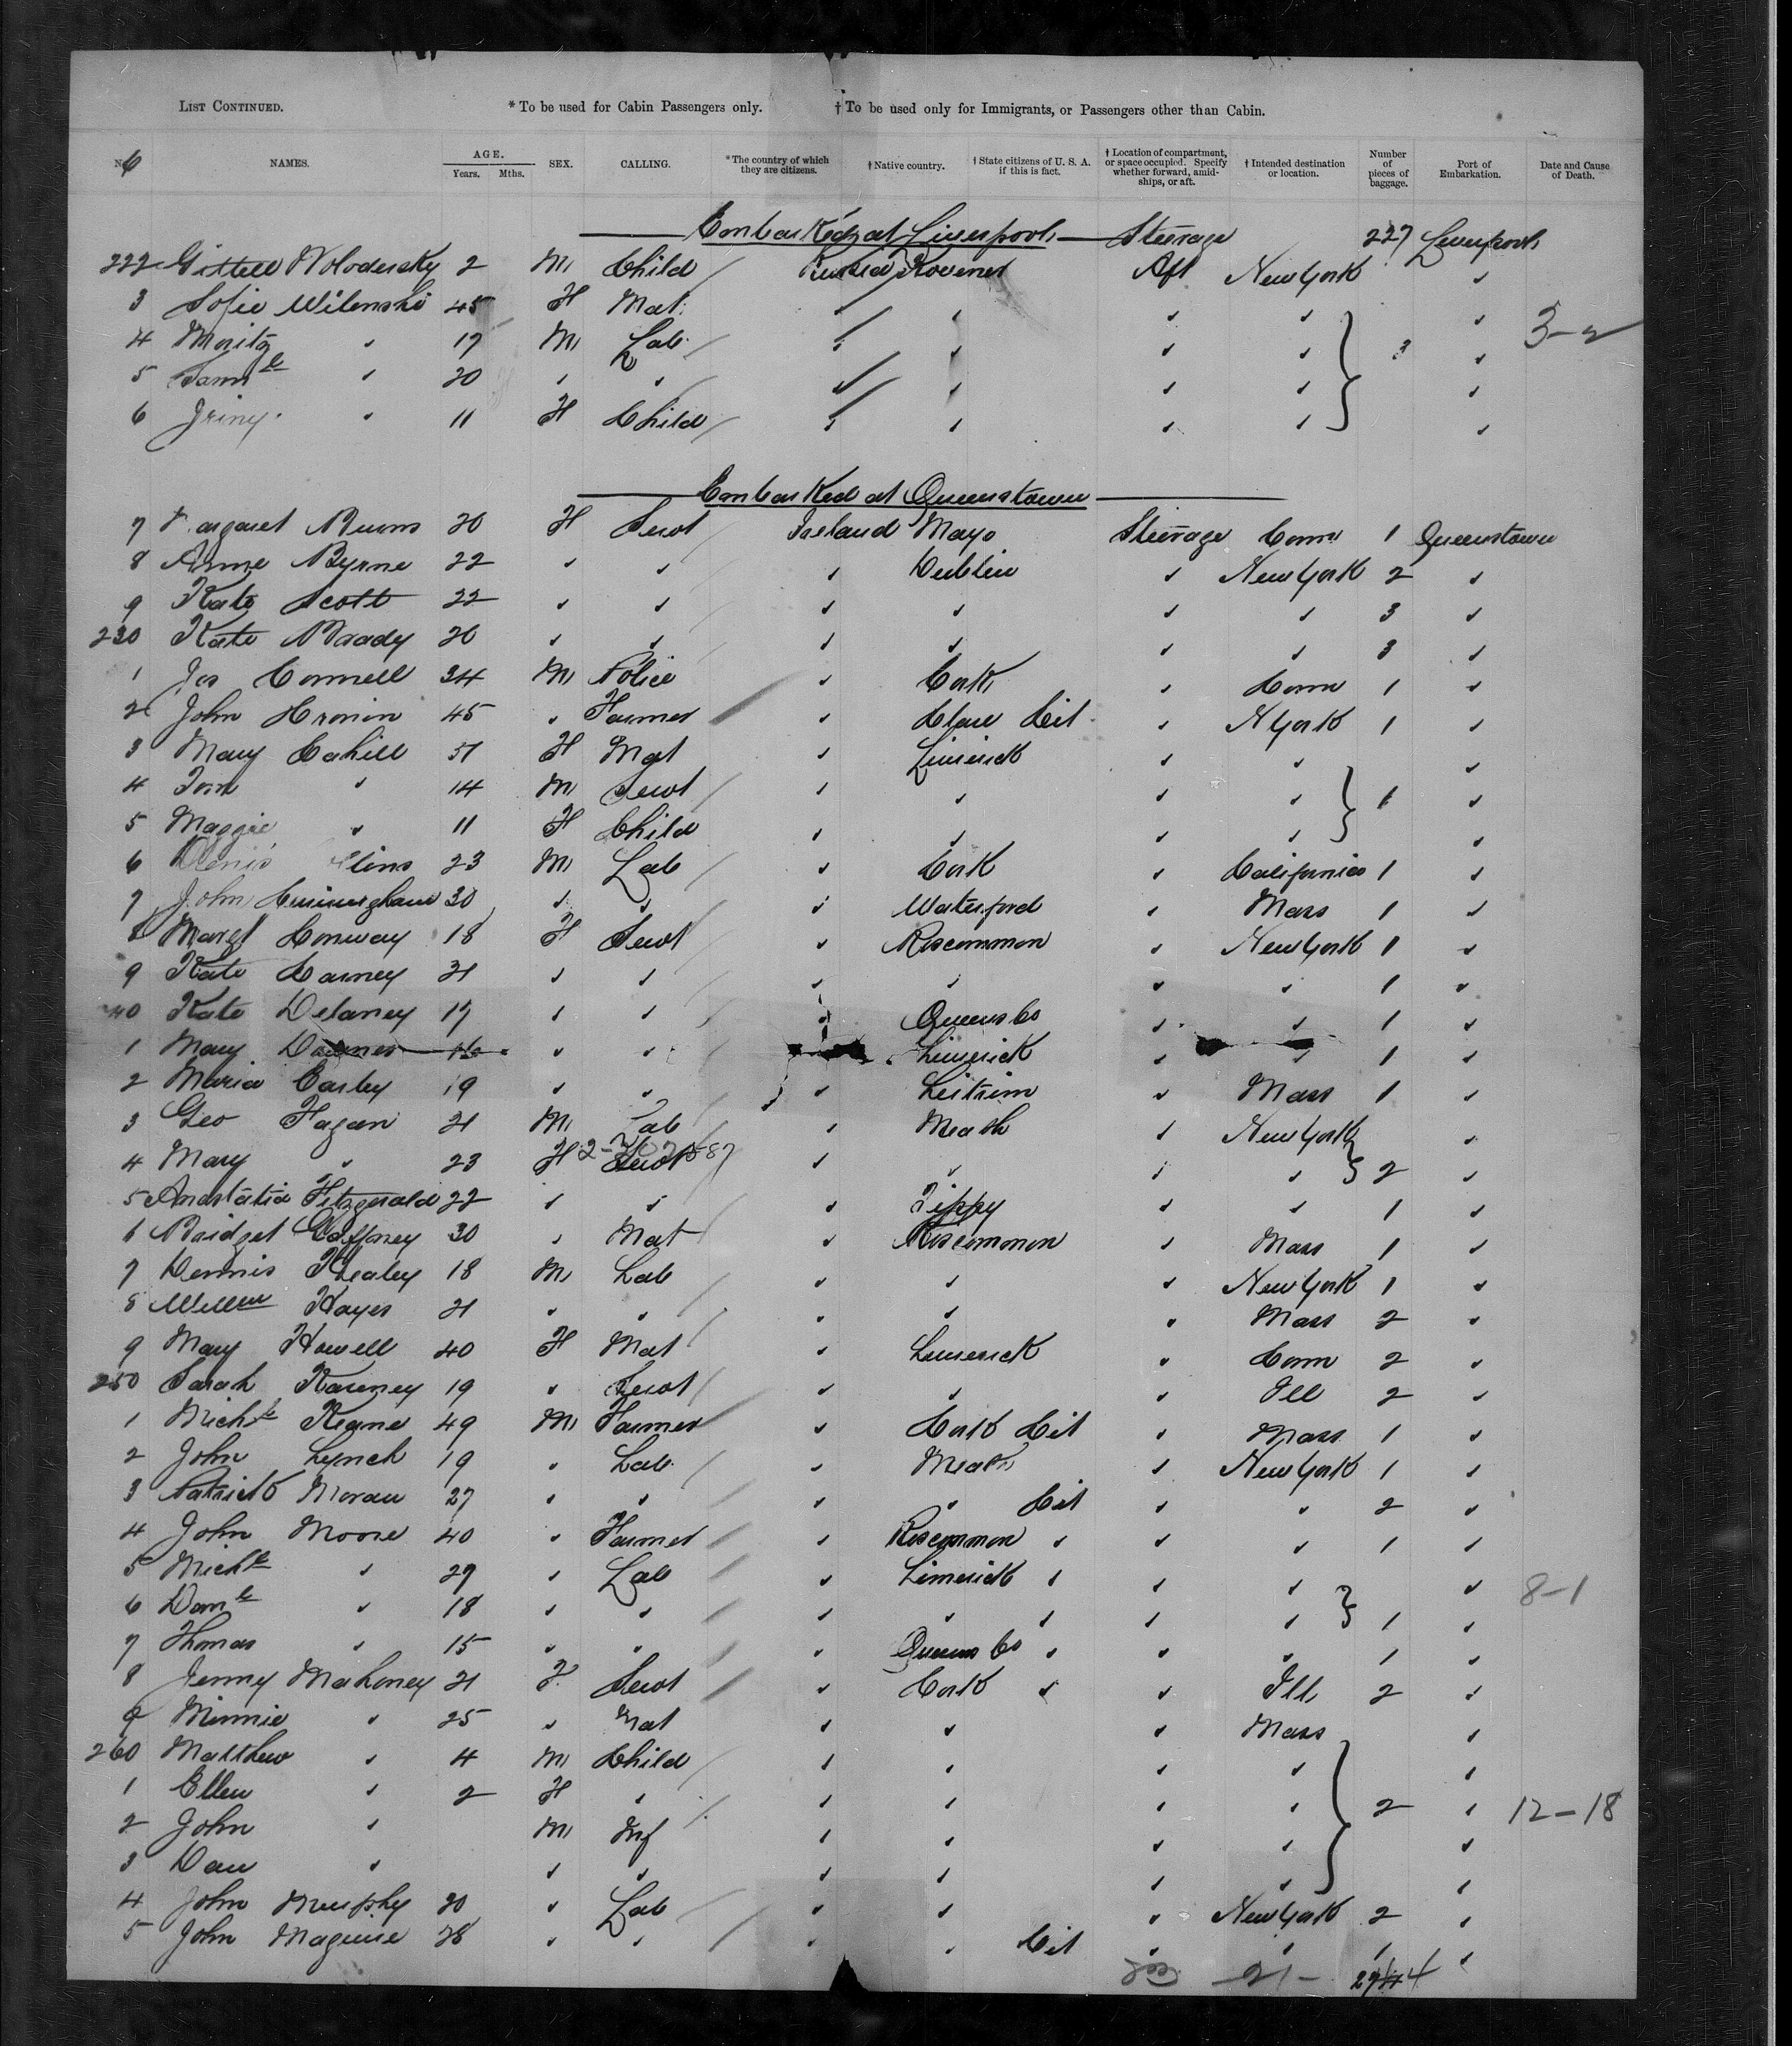 LIST CONTINUED. * To be used for Cabin Passengers only. † To be used only for Immigrants, or Passengers other than Cabin.
6 NAMES. AGE. Years. Mths. SEX. CALLING. *The country of which they are citizens. †Native country. †State citizens of U. S. A. if this is fact. †Location of compartment, or space occupied. Specify whether forward, amidships, or aft. †Intended destination or location. Number of pieces of baggage. Port of Embarkation. Date and Cause of Death.
Embarked at Liverpool Steerage 227 Liverpool
222 Gittell Wolodersky 2 M Child Russia Aft New York "
3 Sofie Wilenski 45 F Mat " " " " "
4 Moritz " 17 M Lab " " " " 3 " 3-2
5 Saml " 20 " " " " " " "
6 " 11 F Child " " " " "
Embarked at Queenstown
7 Margaret Burns 20 F Servt Ireland Mayo Steerage Conn 1 Queenstown
8 Anne Byrne 22 " " " Dublin " New York 2 "
9 Kate Scott 22 " " " " " " 3 "
230 Kate Brady 20 " " " " " " 3 "
1 Jas Connell 34 M Police " Cork " Conn 1 "
2 John Cronin 45 " Farmer " Clare Cit " N York 1 "
3 Mary Cahill 51 F Mat " Limerick " " "
4 Tom " 14 M Servt " " " " 1 "
5 Maggie " 11 F Child " " " " "
6 Denis 23 M Lab " Cork " California 1 "
7 John Cunningham 30 " " " Waterford " Mass 1 "
8 Margt Conway 18 F Servt " Roscommon " New York 1 "
9 Kate Carney 21 " " " " " " 1 "
240 Kate Delaney 17 " " " Queens Co " " 1 "
1 Mary Downes 16 " " " Limerick " " 1 "
2 Maria Earley 19 " " " Leitrim " Mass 1 "
3 Geo Fagan 21 M Lab " Meath " New York "
4 Mary " 23 F Servt " " " " 2 "
5 Anastatia Fitzgerald 22 " " " Tippy " " 1 "
6 Bridget Gaffney 30 " Mat " Roscommon " Mass 1 "
7 Dennis Healey 18 M Lab " " " New York 1 "
8 Willm Hayes 21 " " " " " Mass 2 "
9 Mary Howell 40 F Mat " Limerick " Conn 2 "
250 Sarah Kearney 19 " Servt " " " Ill 2 "
1 Michl Keane 49 M Farmer " Cork Cit " Mass 1 "
2 John Lynch 19 " Lab " Meath " New York 1 "
3 Patrick Moran 27 " " " " Cit " " 2 "
4 John Moore 40 " Farmer " Roscommon " " " 1 "
5 Michl " 29 " Lab " Limerick " " " " 8-1
6 Danl " 18 " " " " " " " 1 "
7 Thomas " 15 " " " Queens Co " " " 1 "
8 Jenny Mahoney 21 F Servt " Cork " " Ill 2 "
9 Minnie " 25 " Mat " " " Mass "
260 Matthew " 4 M Child " " " " "
1 Ellen " 2 F " " " " " 2 " 12-18
2 John " M Inf " " " " "
3 Dan " " " " " " " "
4 John Murphy 20 " Lab " " " New York 2 "
5 John Maguire 28 " " " " Cit " " 1 "